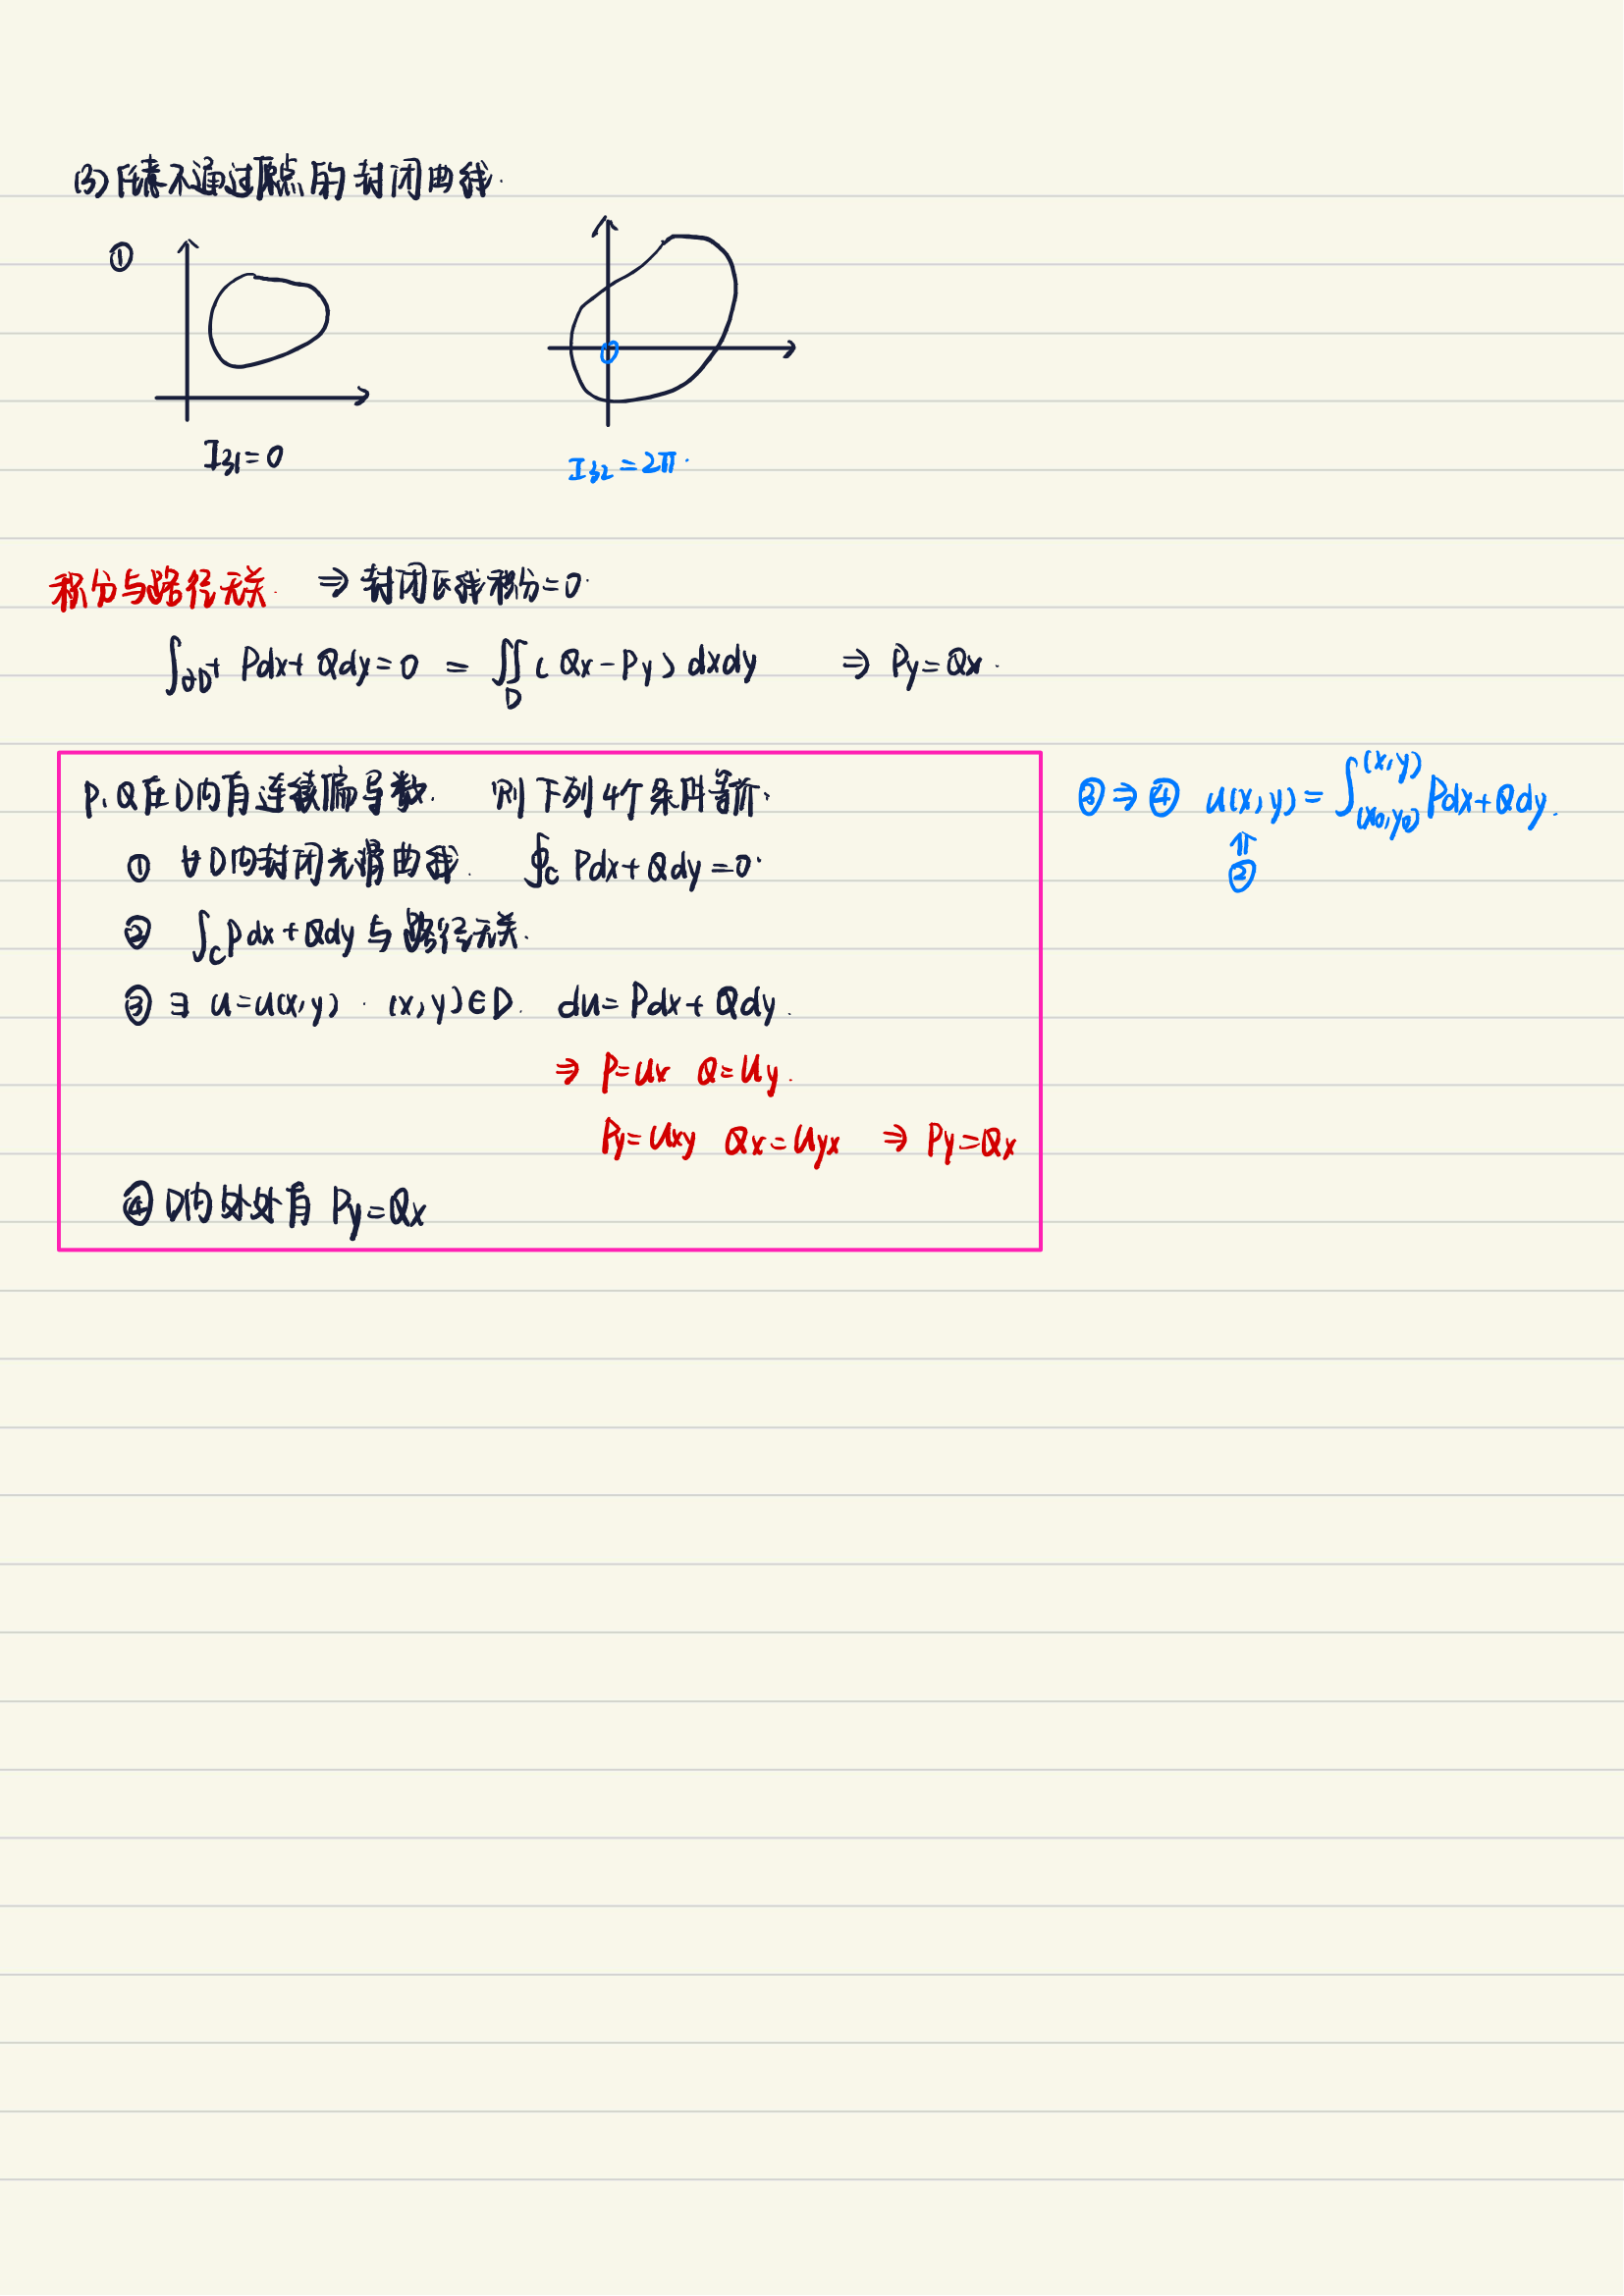 (3) 任意不通过原点的封闭曲线.
①
I₃₁=0
I₃₂=2π.
积分与路径无关. ⇒ 封闭曲线积分=0.
∫_{∂D⁺} Pdx+Qdy=0 = ∬_D (Qx-Py) dxdy ⇒ Py=Qx.
P.Q在D内有连续偏导数. 则下列4个条件等价.
① ∀D内封闭光滑曲线. ∮_C Pdx+Qdy=0.
② ∫_C Pdx+Qdy 与路径无关.
③ ∃ u=u(x,y) . (x,y)∈D. du=Pdx+Qdy.
⇒ P=ux Q=uy.
Py=uxy Qx=uyx ⇒ Py=Qx
④ D内处处有 Py=Qx
③⇒④ u(x,y)=∫_{(x₀,y₀)}^{(x,y)} Pdx+Qdy.
⇑
②